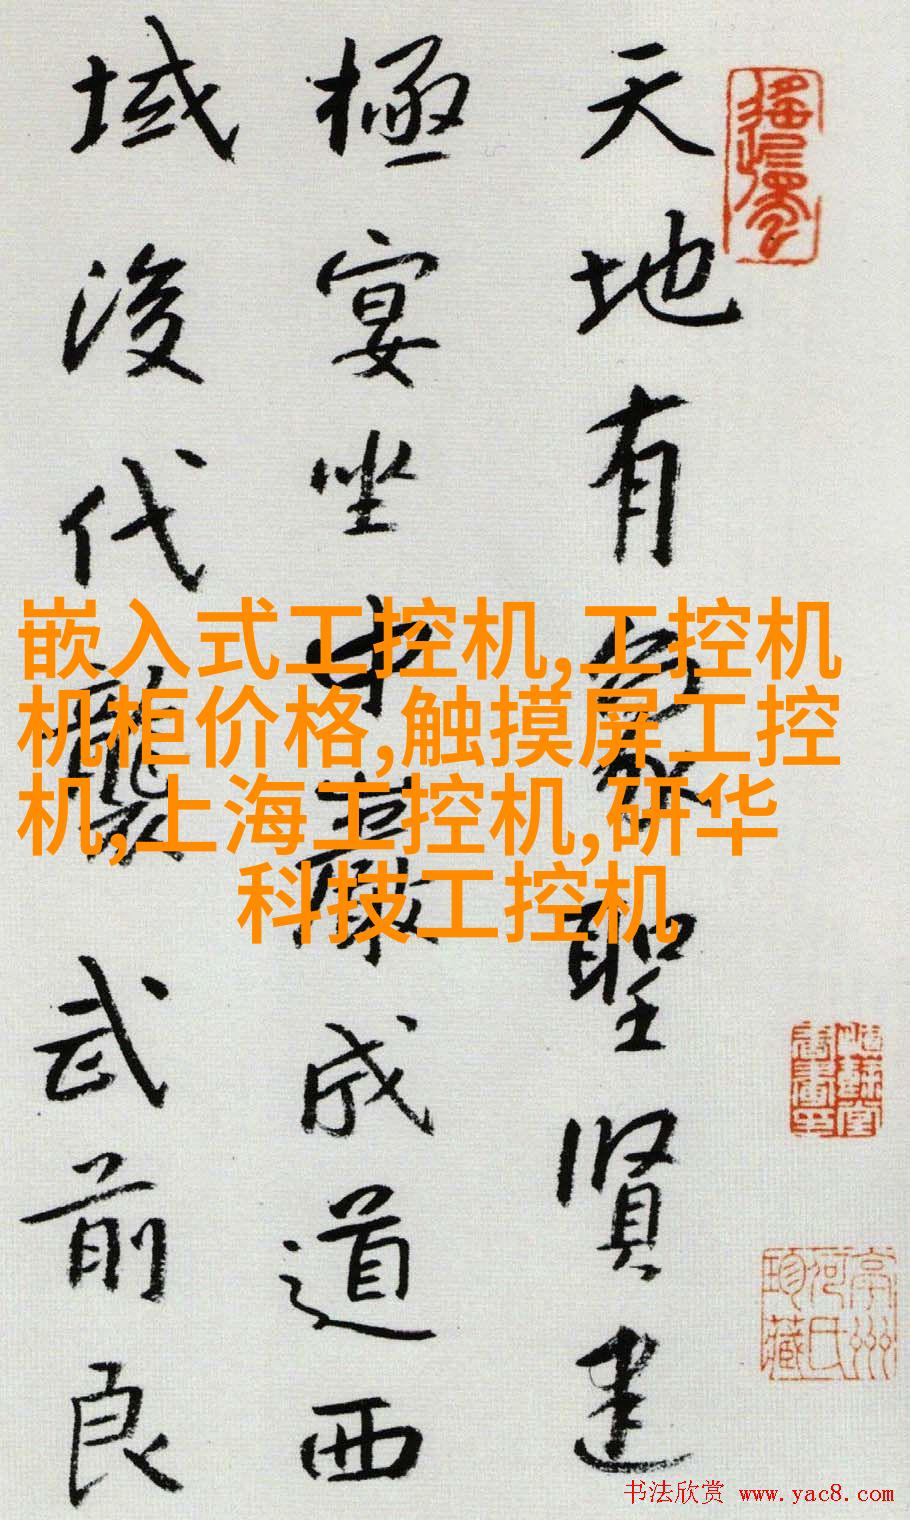 天地有象聖賢建
極宴坐中嚴成道西
域後代襲武前良
嵌入式工控机,工控机
机柜价格,触摸屏工控
机,上海工控机,研华
科技工控机
亭州
河氏
珍藏
书法欣赏 www.yac8.com